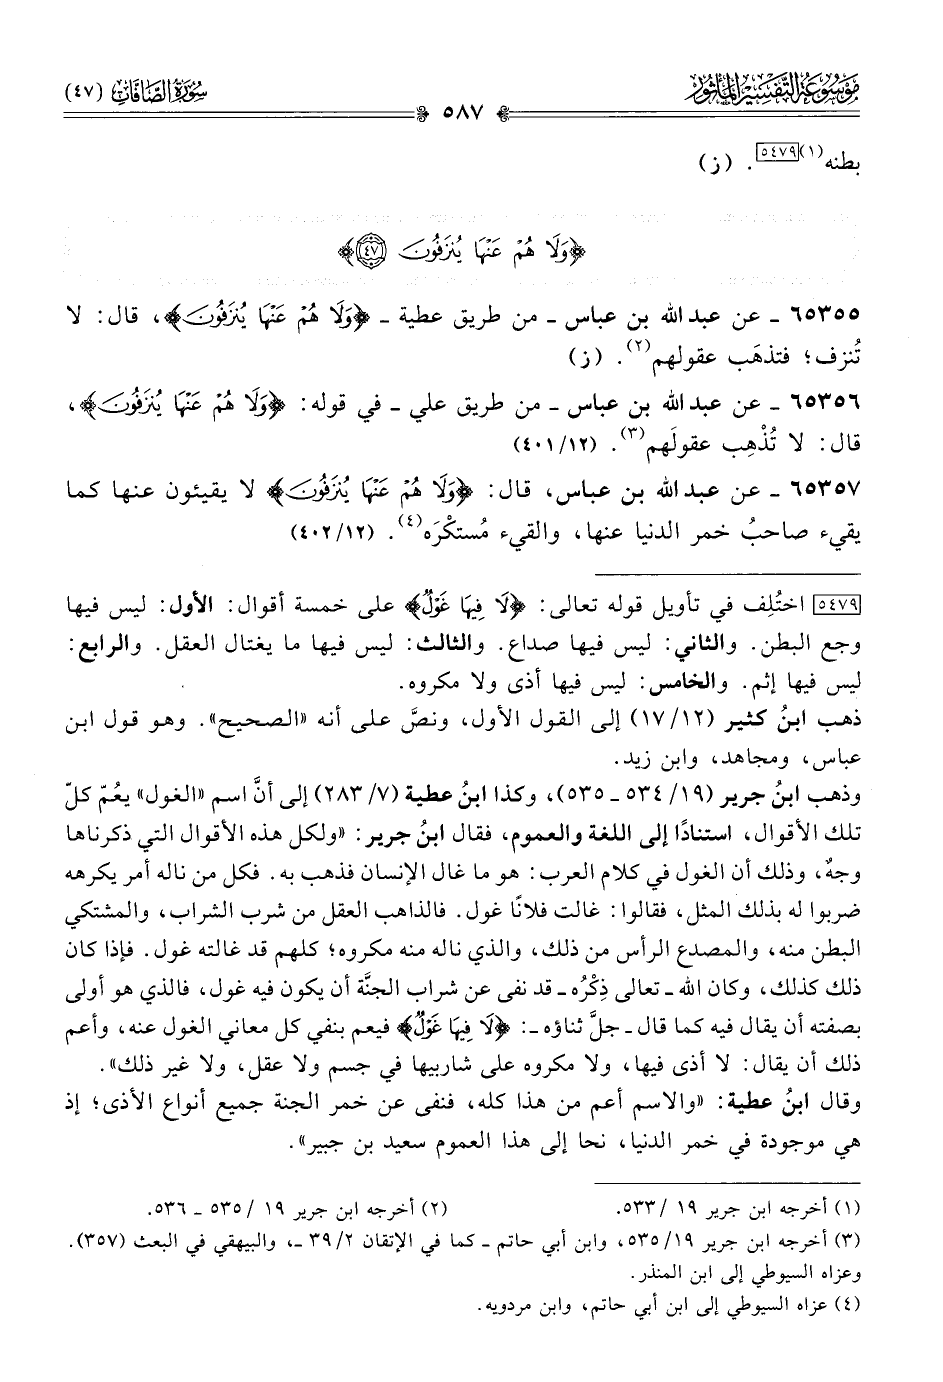 موسوعة التفسير المأثور
سورة الصافات (٤٧)
٥٨٧
بطنه(١)[٥٤٧٩]. (ز)
﴿وَلَا هُمْ عَنْهَا يُنزَفُونَ ٤٧﴾
٦٥٣٥٥ ـ عن عبد الله بن عباس ـ من طريق عطية ـ ﴿وَلَا هُمْ عَنْهَا يُنزَفُونَ﴾، قال: لا
تُنزف؛ فتذهَب عقولهم(٢). (ز)
٦٥٣٥٦ ـ عن عبد الله بن عباس ـ من طريق علي ـ في قوله: ﴿وَلَا هُمْ عَنْهَا يُنزَفُونَ﴾،
قال: لا تُذْهِب عقولَهم(٣). (١٢/٤٠١)
٦٥٣٥٧ ـ عن عبد الله بن عباس، قال: ﴿وَلَا هُمْ عَنْهَا يُنزَفُونَ﴾ لا يقيئون عنها كما
يقيء صاحبُ خمر الدنيا عنها، والقيء مُستكْرَه(٤). (١٢/٤٠٢)
[٥٤٧٩] اختُلِف في تأويل قوله تعالى: ﴿لَا فِيهَا غَوْلٌ﴾ على خمسة أقوال: الأول: ليس فيها
وجع البطن. والثاني: ليس فيها صداع. والثالث: ليس فيها ما يغتال العقل. والرابع:
ليس فيها إثم. والخامس: ليس فيها أذى ولا مكروه.
ذهب ابنُ كثير (١٢/١٧) إلى القول الأول، ونصَّ على أنه «الصحيح». وهو قول ابن
عباس، ومجاهد، وابن زيد.
وذهب ابنُ جرير (١٩/ ٥٣٤ ـ ٥٣٥)، وكذا ابنُ عطية (٧/ ٢٨٣) إلى أنَّ اسم «الغول» يعُمّ كلّ
تلك الأقوال، استنادًا إلى اللغة والعموم، فقال ابنُ جرير: «ولكل هذه الأقوال التي ذكرناها
وجهٌ، وذلك أن الغول في كلام العرب: هو ما غال الإنسان فذهب به. فكل من ناله أمر يكرهه
ضربوا له بذلك المثل، فقالوا: غالت فلانًا غول. فالذاهب العقل من شرب الشراب، والمشتكي
البطن منه، والمصدع الرأس من ذلك، والذي ناله منه مكروه؛ كلهم قد غالته غول. فإذا كان
ذلك كذلك، وكان الله ـ تعالى ذِكْرُه ـ قد نفى عن شراب الجنَّة أن يكون فيه غول، فالذي هو أولى
بصفته أن يقال فيه كما قال ـ جلَّ ثناؤه ـ: ﴿لَا فِيهَا غَوْلٌ﴾ فيعم بنفي كل معاني الغول عنه، وأعم
ذلك أن يقال: لا أذى فيها، ولا مكروه على شاربيها في جسم ولا عقل، ولا غير ذلك».
وقال ابنُ عطية: «والاسم أعم من هذا كله، فنفى عن خمر الجنة جميع أنواع الأذى؛ إذ
هي موجودة في خمر الدنيا، نحا إلى هذا العموم سعيد بن جبير».
(١) أخرجه ابن جرير ١٩/ ٥٣٣. (٢) أخرجه ابن جرير ١٩/ ٥٣٥ ـ ٥٣٦.
(٣) أخرجه ابن جرير ١٩/ ٥٣٥، وابن أبي حاتم ـ كما في الإتقان ٢/ ٣٩ ـ، والبيهقي في البعث (٣٥٧).
وعزاه السيوطي إلى ابن المنذر.
(٤) عزاه السيوطي إلى ابن أبي حاتم، وابن مردويه.